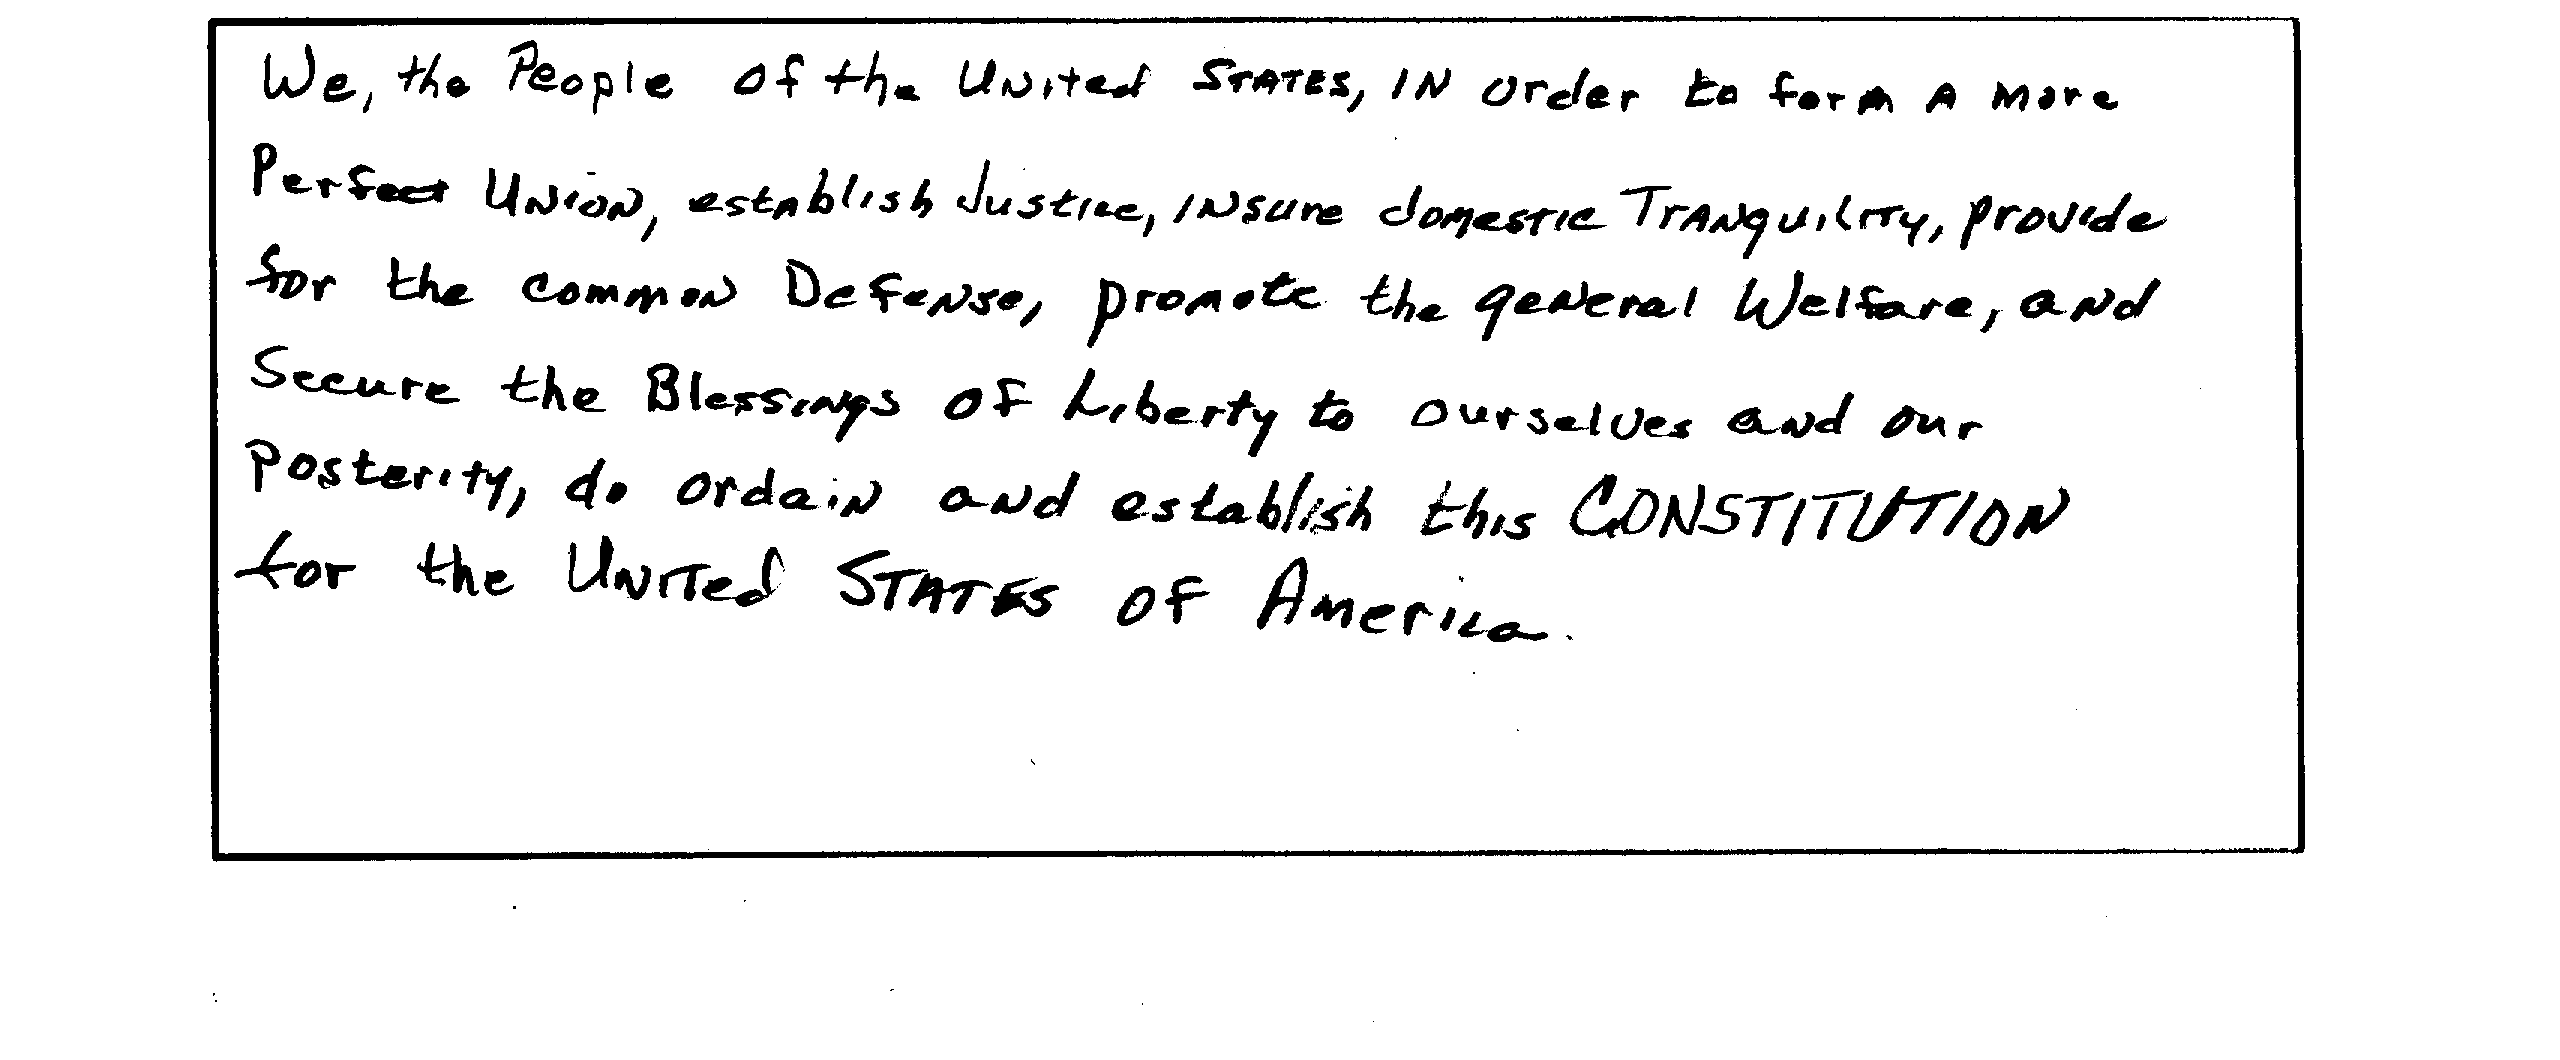 We, the People of the United States, in order to form a more
Perfect Union, establish Justice, insure domestic Tranquility, provide
for the common Defense, promote the general Welfare, and
Secure the Blessings of Liberty to ourselves and our
posterity, do ordain and establish this CONSTITUTION
for the United States of America.